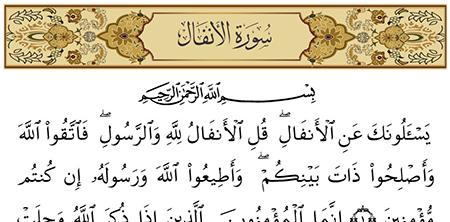 سُورَةُ الأَنفَالِ
بِسْمِ ٱللَّهِ ٱلرَّحْمَٰنِ ٱلرَّحِيمِ
يَسْـَٔلُونَكَ عَنِ ٱلْأَنفَالِ ۖ قُلِ ٱلْأَنفَالُ لِلَّهِ وَٱلرَّسُولِ ۖ فَٱتَّقُوا۟ ٱللَّهَ
وَأَصْلِحُوا۟ ذَاتَ بَيْنِكُمْ ۖ وَأَطِيعُوا۟ ٱللَّهَ وَرَسُولَهُۥٓ إِن كُنتُم
مُّؤْمِنِينَ ﴿١﴾ إِنَّمَا ٱلْمُؤْمِنُونَ ٱلَّذِينَ إِذَا ذُكِرَ ٱللَّهُ وَجِلَتْ